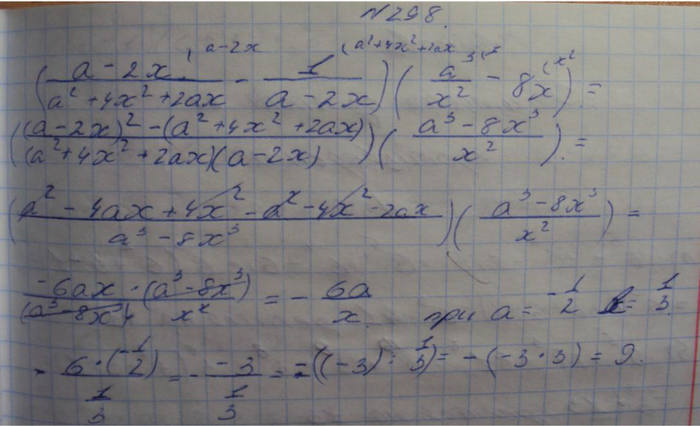 №298.
((a-2x)/(a²+4x²+2ax) ^(a-2x) - 1/(a-2x) ^(a²+4x²+2ax)) (a³/x² - 8x ^(x²)) =
(((a-2x)² - (a²+4x²+2ax))/((a²+4x²+2ax)(a-2x))) ((a³-8x³)/x²) =
((a²-4ax+4x²-a²-4x²-2ax)/(a³-8x³)) ((a³-8x³)/x²) =
(-6ax·(a³-8x³))/((a³-8x³)·x²) = -6a/x при a = -1/2 x = 1/3
- (6·(-1/2))/(1/3) = - (-3)/(1/3) = -((-3):1/3) = -(-3·3) = 9.